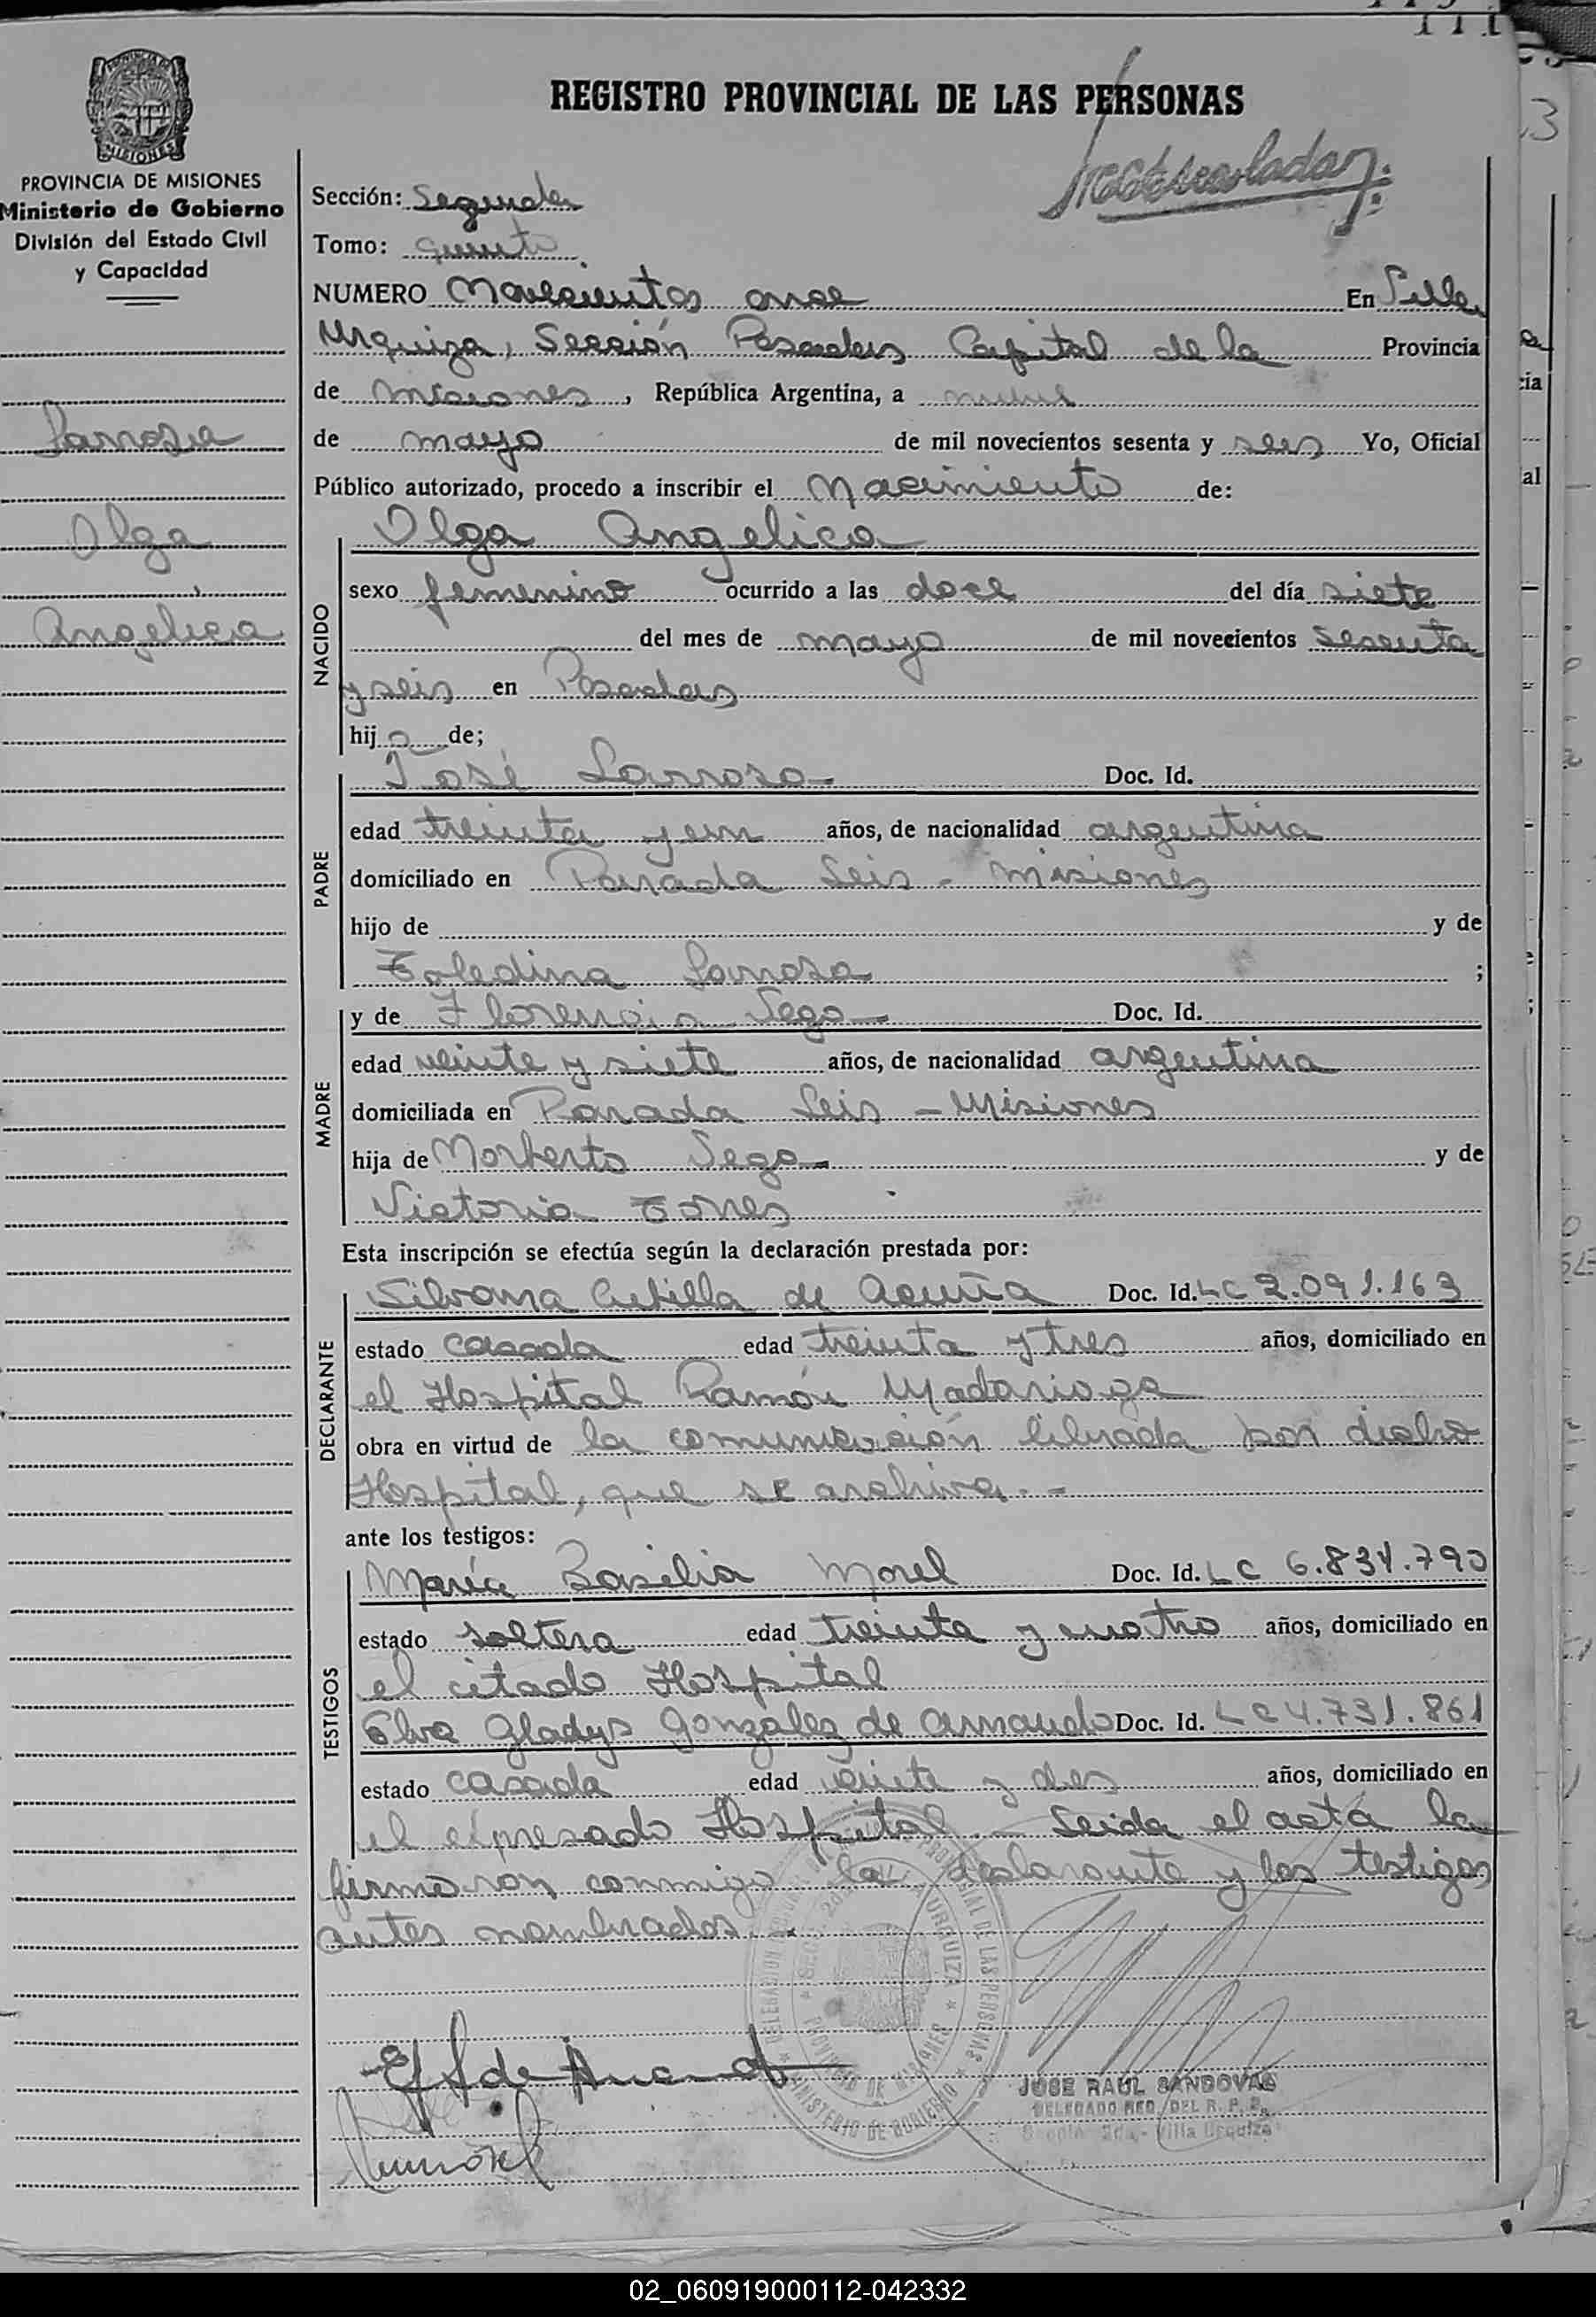 REGISTRO PROVINCIAL DE LAS PERSONAS
MISIONES
PROVINCIA DE MISIONES
Ministerio de Gobierno
División del Estado Civil
y Capacidad
Larrosa
Olga
Angelica
Sección: Segunda
Tomo: quinto
NUMERO Novecientos once En Villa
Urquiza, Sección Posadas Capital de la Provincia
de Misiones, República Argentina, a nueve
de mayo de mil novecientos sesenta y seis Yo, Oficial
Público autorizado, procedo a inscribir el Nacimiento de:
NACIDO
Olga Angelica
sexo femenino ocurrido a las doce del día siete
del mes de mayo de mil novecientos sesenta
y seis en Posadas
hij a de;
PADRE
José Larrosa Doc. Id.
edad treinta y un años, de nacionalidad argentina
domiciliado en Parada Seis - Misiones
hijo de y de
Toledina Larrosa ;
MADRE
y de Florencia Sego Doc. Id.
edad veinte y siete años, de nacionalidad argentina
domiciliada en Parada Seis - Misiones
hija de Norberto Sego y de
Victoria Torres
Esta inscripción se efectúa según la declaración prestada por:
DECLARANTE
Silvana Cubilla de Acuña Doc. Id. LC 2.091.163
estado casada edad treinta y tres años, domiciliado en
el Hospital Ramón Madariaga
obra en virtud de la comunicación librada por dicho
Hospital, que se archiva. -
ante los testigos:
TESTIGOS
María Basilia Morel Doc. Id. LC 6.834.790
estado soltera edad treinta y cuatro años, domiciliado en
el citado Hospital
Elva Gladys Gonzalez de Armando Doc. Id. LC 4.731.861
estado casada edad veinte y dos años, domiciliado en
el expresado Hospital. - Leida el acta la
firmaron conmigo la declarante y los testigos
antes nombrados. -
JOSE RAUL SANDOVAL
DELEGADO REG. DEL R. P. P.
Sección 2da. - Villa Urquiza
02_060919000112-042332